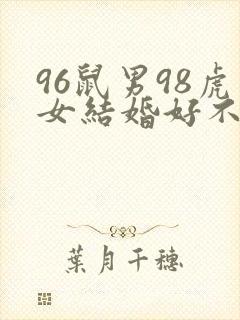 96鼠男98虎
女結婚好不
葉月千穗